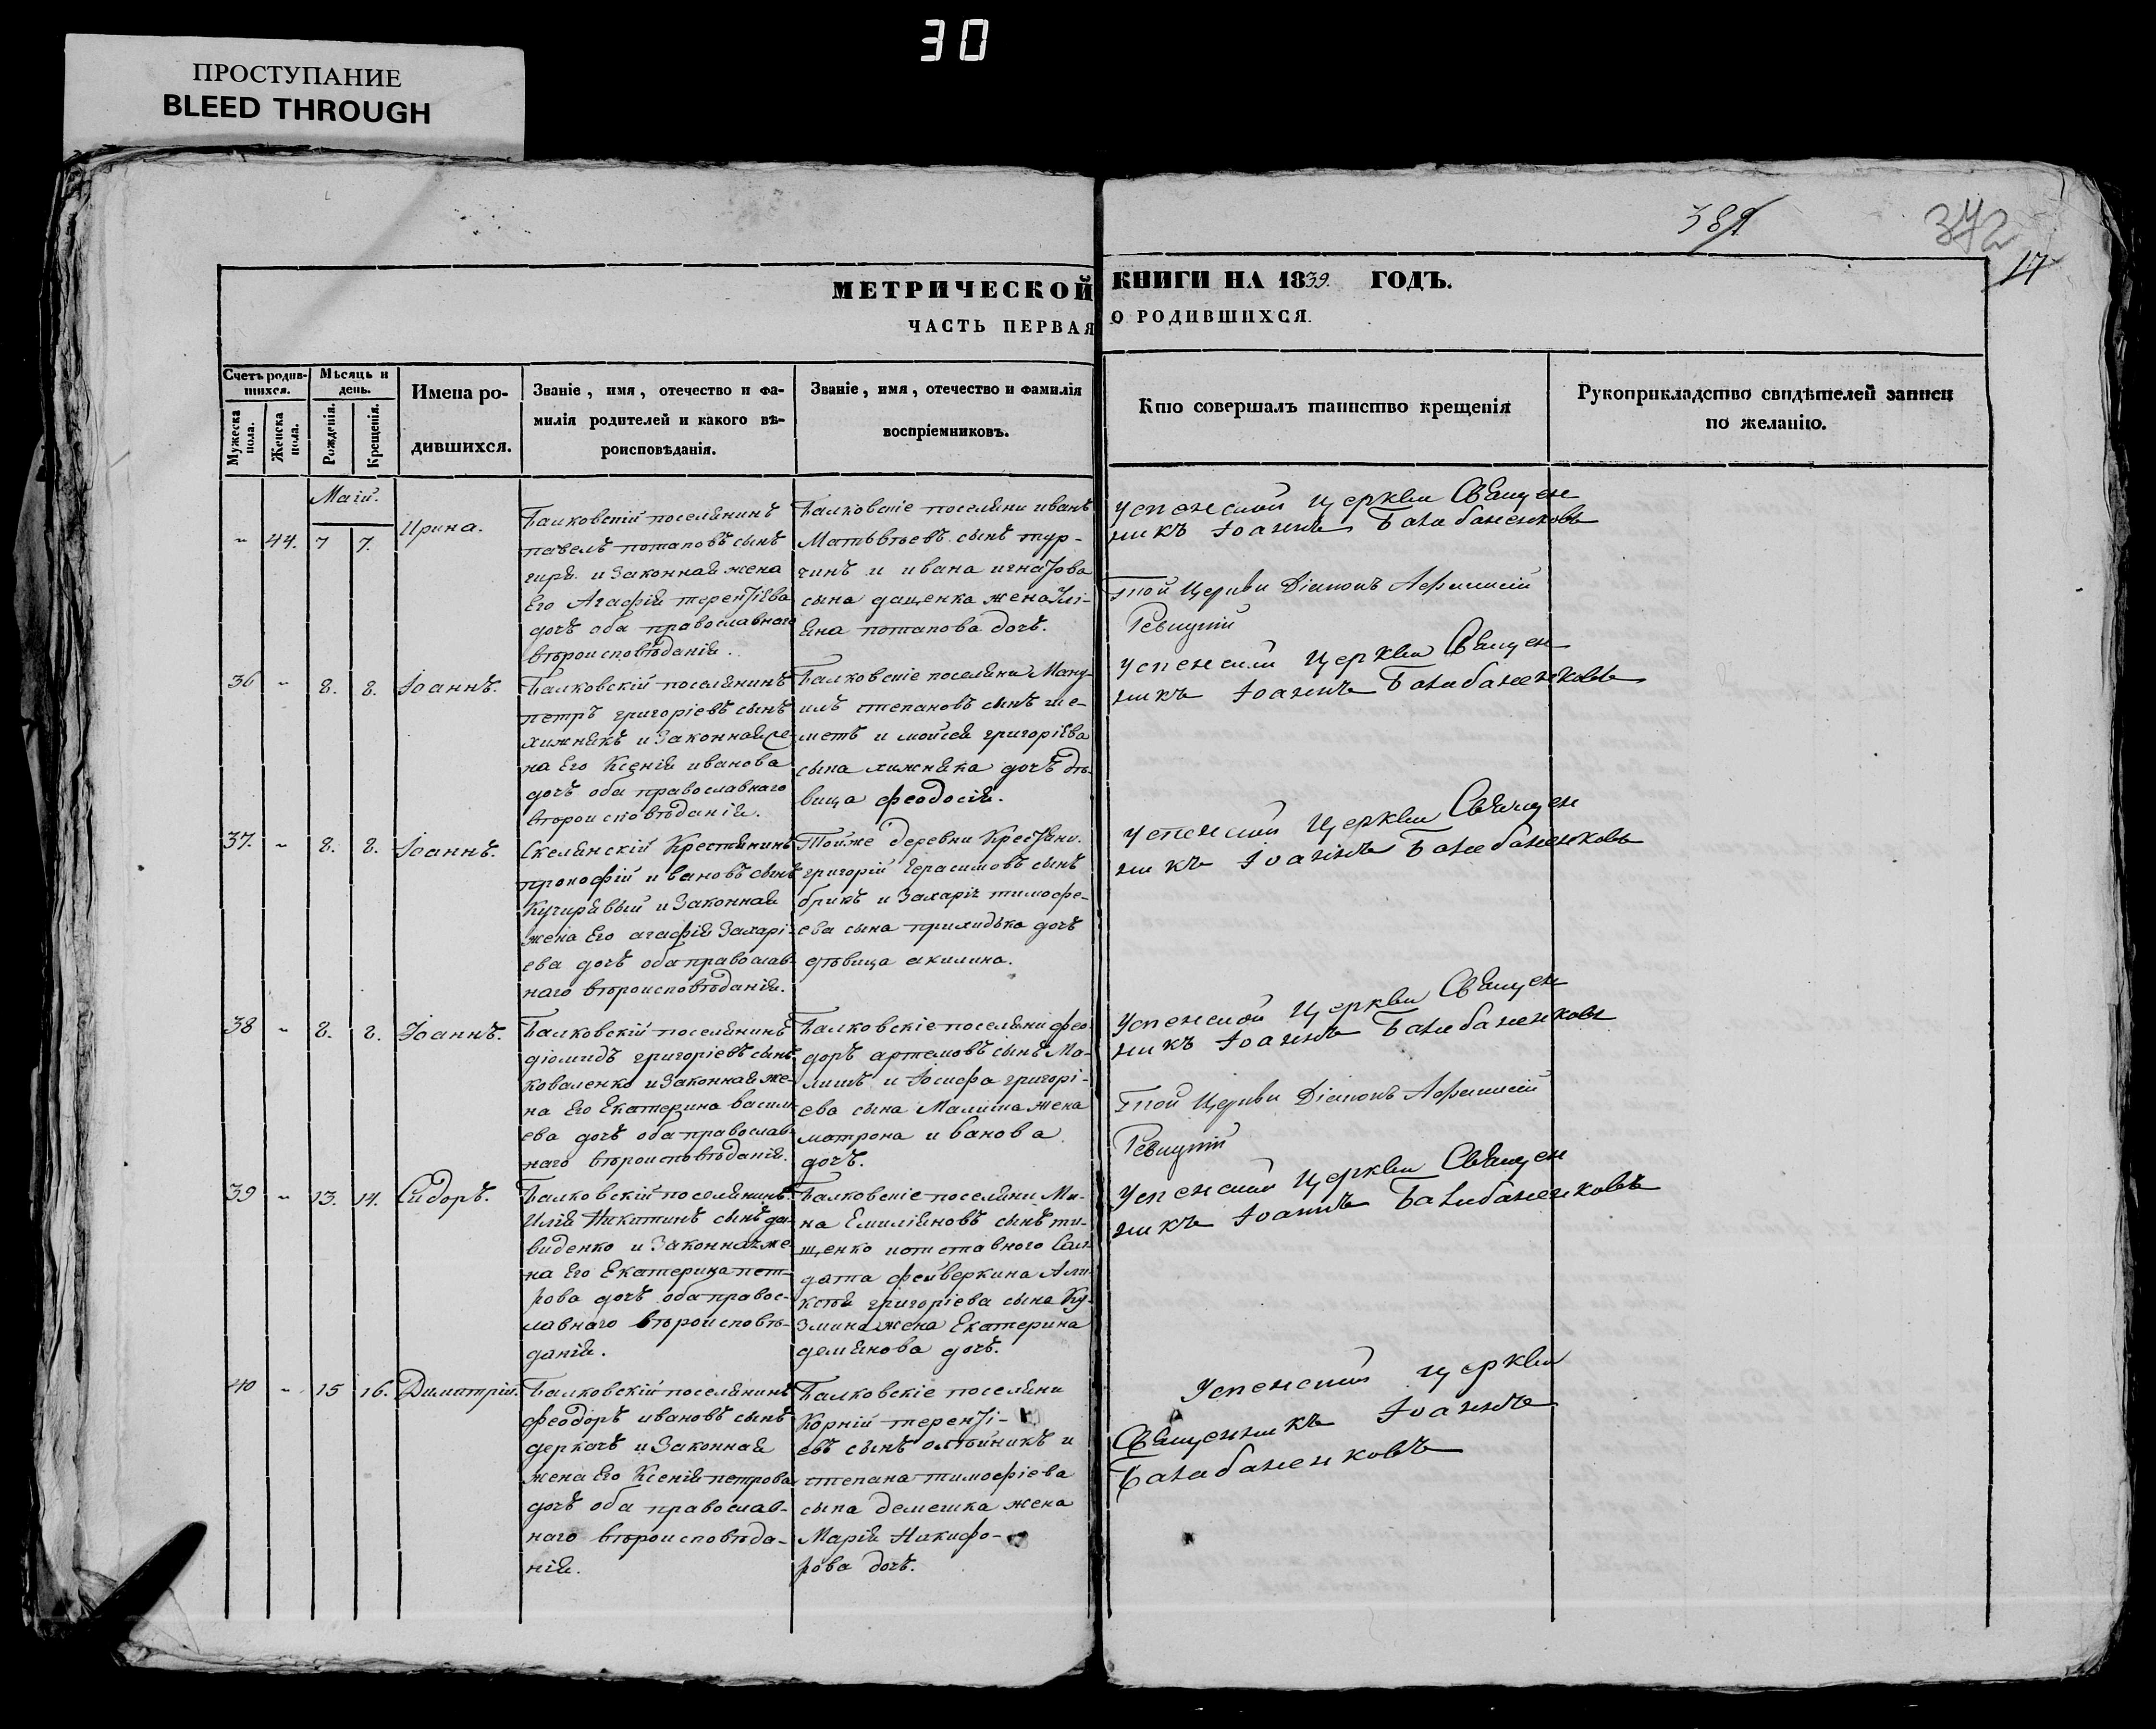 30
ПРОСТУПАНИЕ
BLEED THROUGH
389
372
17
МЕТРИЧЕСКОЙ КНИГИ НА 1839. ГОДЪ.
ЧАСТЬ ПЕРВАЯ О РОДИВШИХСЯ.
Счетъ родившихся.
Мужеска пола.
Женска пола.
Мѣсяць и день.
Рожденія.
Крещенія.
Имена родившихся.
Званіе, имя, отечество и фа-
милія родителей и какого вѣ-
роисповѣданія.
Званіе, имя, отечество и фамилія
воспріемниковъ.
Кто совершалъ таинство крещенія
Рукоприкладство свидѣтелей записи
по желанію.
Маій.
" 44. 7 7. Ирина.
Балковскій поселянинъ
павелъ потаповъ сынъ
и законная жена
Его Агафія терентіева
дочь оба православнаго
вѣроисповѣданія.
Балковскіе поселяни иванъ
Матвѣевъ сынъ тур-
чинъ и ивана игнатова
сына дащенка жена Улі-
яна потапова дочь.
Успенской Церкви Священ
никъ Іоаннъ Балабаненковъ
Той Церкви Діаконъ Афанасій
Ревуцкій
36 " 8. 8. Іоаннъ.
Балковскій поселянинъ
петръ григоріевъ сынъ
хижнякъ и законная же-
на Его Ксенія иванова
дочь оба православнаго
вѣроисповѣданія.
Балковскіе поселяни Ману-
илъ степановъ сынъ ше-
метъ и мойсея григоріева
сына хижняка дочь дѣ-
вица феодосія.
Успенской Церкви Священ
никъ Іоаннъ Балабаненковъ
37. " 8. 8. Іоаннъ.
Скелянскій Крестянинъ
прокофій ивановъ сынъ
Кучирявый и Законная
жена Его агафія Захарі-
ева дочь оба православ-
наго вѣроисповѣданія.
Тойже деревни Крестяни
григорій Герасимовъ сынъ
брикъ и Захарія тимофе-
ева сына прихидька дочь
дѣвица акилина.
Успенской Церкви Священ
никъ Іоаннъ Балабаненковъ
38 " 8. 8. Іоаннъ.
Балковскій поселянинъ
діомидъ григоріевъ сынъ
коваленко и Законная же-
на Его Екатерина васили-
ева дочь оба православ-
наго вѣроисповѣданія.
Балковскіе поселяни фео-
доръ артемовъ сынъ Ма-
лишъ и Іосифа григорі-
ева сына Малиша жена
матрона иванова
дочь.
Успенской Церкви Священ
никъ Іоаннъ Балабаненковъ
Той Церкви Діаконъ Афанасій
Ревуцкій
39 " 13. 14. Сидоръ.
Балковскій поселянинъ
Илія Никитинъ сынъ да-
виденко и Законная же-
на Его Екатерина пет-
рова дочь оба правос-
лавнаго вѣроисповѣ-
данія.
Балковскіе поселяни Ми-
на Емиліановъ сынъ ти-
щенко и отставного Сал-
дата фейверкина Але-
ксѣя григоріева сына Ку-
змина жена Екатерина
демянова дочь.
Успенской Церкви Священ
никъ Іоаннъ Балабаненковъ
40 " 15 16. Димитрій.
Балковскій поселянинъ
феодоръ ивановъ сынъ
деркачь и Законная
жена Его Ксенія петрова
дочь оба православ-
наго вѣроисповѣда-
нія.
Балковскіе поселяни
Корній теренті-
евъ сынъ олѣйникъ и
степана тимофіева
сына демешка жена
Марія Никифо-
рова дочь.
Успенской церкви
Священникъ Іоаннъ
Балабаненковъ